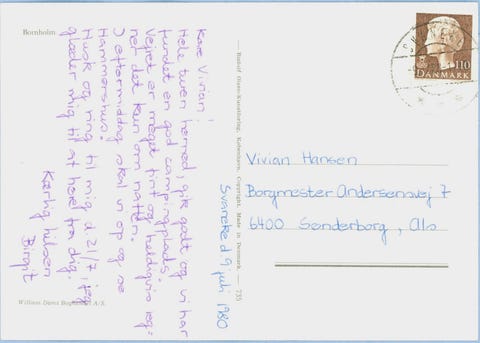 Bornholm
Svaneke d 9 juli 1980
Kære Vivian!
Hele turen herned gik godt og vi har
fundet en god campingplads.
Vejret er meget fint og heldigvis reg-
net det kun om natten.
I eftermiddag skal vi op og se
Hammershus.
Husk og ring til mig d 21/7, jeg
glæder mig til at høre fra dig.
Kærlig hilsen
Birgit
William Dam's Boghandel A/S.
— Rudolf Olsens Kunstforlag, København. Copyright. Made in Denmark. — 735
110
DANMARK
Vivian Hansen
Borgmester Andersensvej 7
6400 Sønderborg, Als